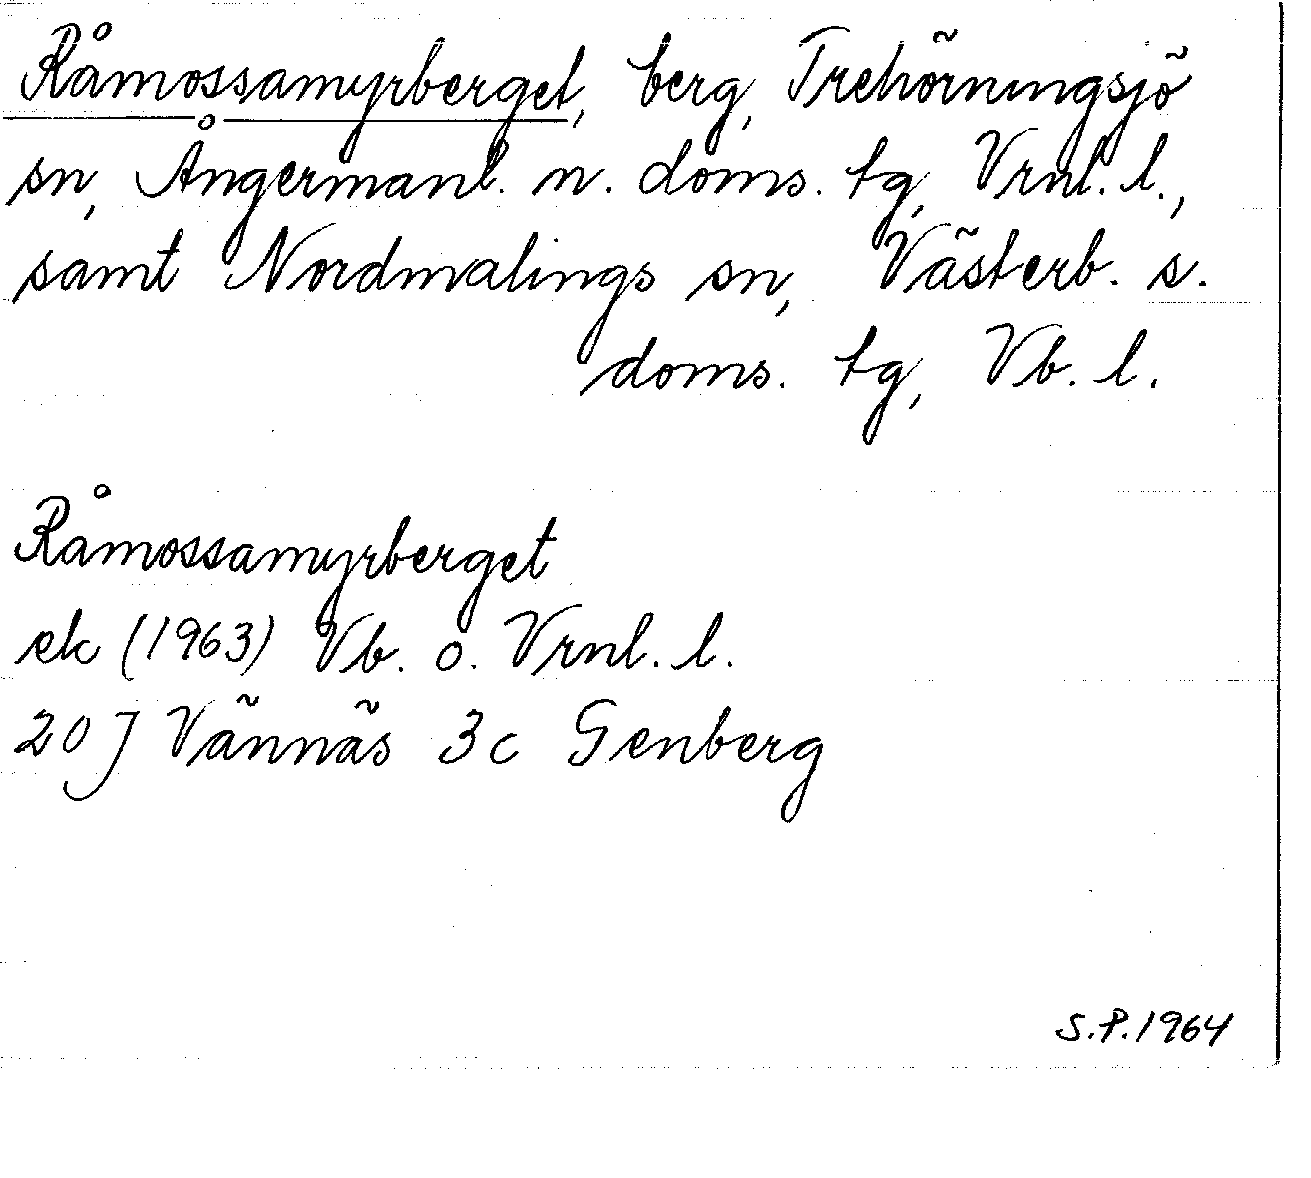 Råmossamyrberget, berg, Trehörningsjö
sn, Ångermanl. n. doms. tg, Vrnl. l.,
samt Nordmalings sn, Västerb. s.
doms. tg, Vb. l.
Råmossamyrberget
ek (1963) Vb. o. Vrnl. l.
20 J Vännäs 3c Genberg
S.P. 1964